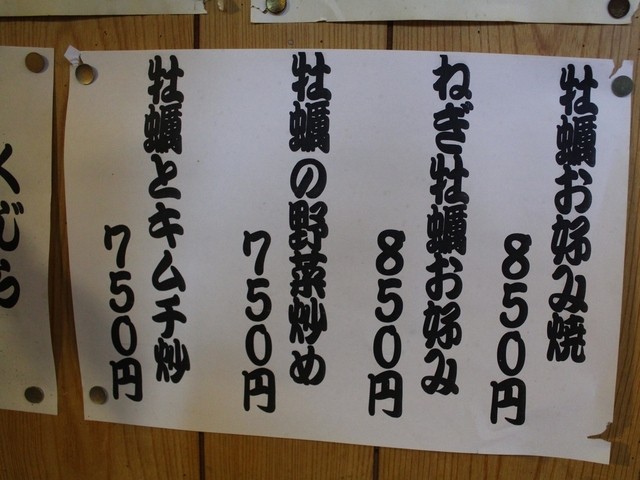 牡蠣お好み焼
850円
ねぎ牡蠣お好み
850円
牡蠣の野菜炒め
750円
牡蠣とキムチ炒
750円
くじら